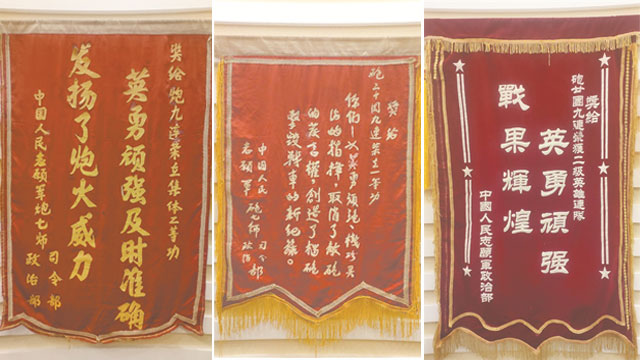 奖给炮九连荣立集体二等功
英勇顽强及时准确
发扬了炮火威力
中国人民志愿军炮七师
司令部
政治部
奖给
砲二十团九连荣立一等功
你们以英勇顽强、机巧灵
活的指挥,取消了敌砲
的发言權,创造了榴砲
击毁戰車的新纪录。
中国人民
志愿军砲七师
司令部
政治
獎給
砲廿團九連榮獲二級英雄連隊
英勇頑强
戰果輝煌
中國人民志願軍政治部